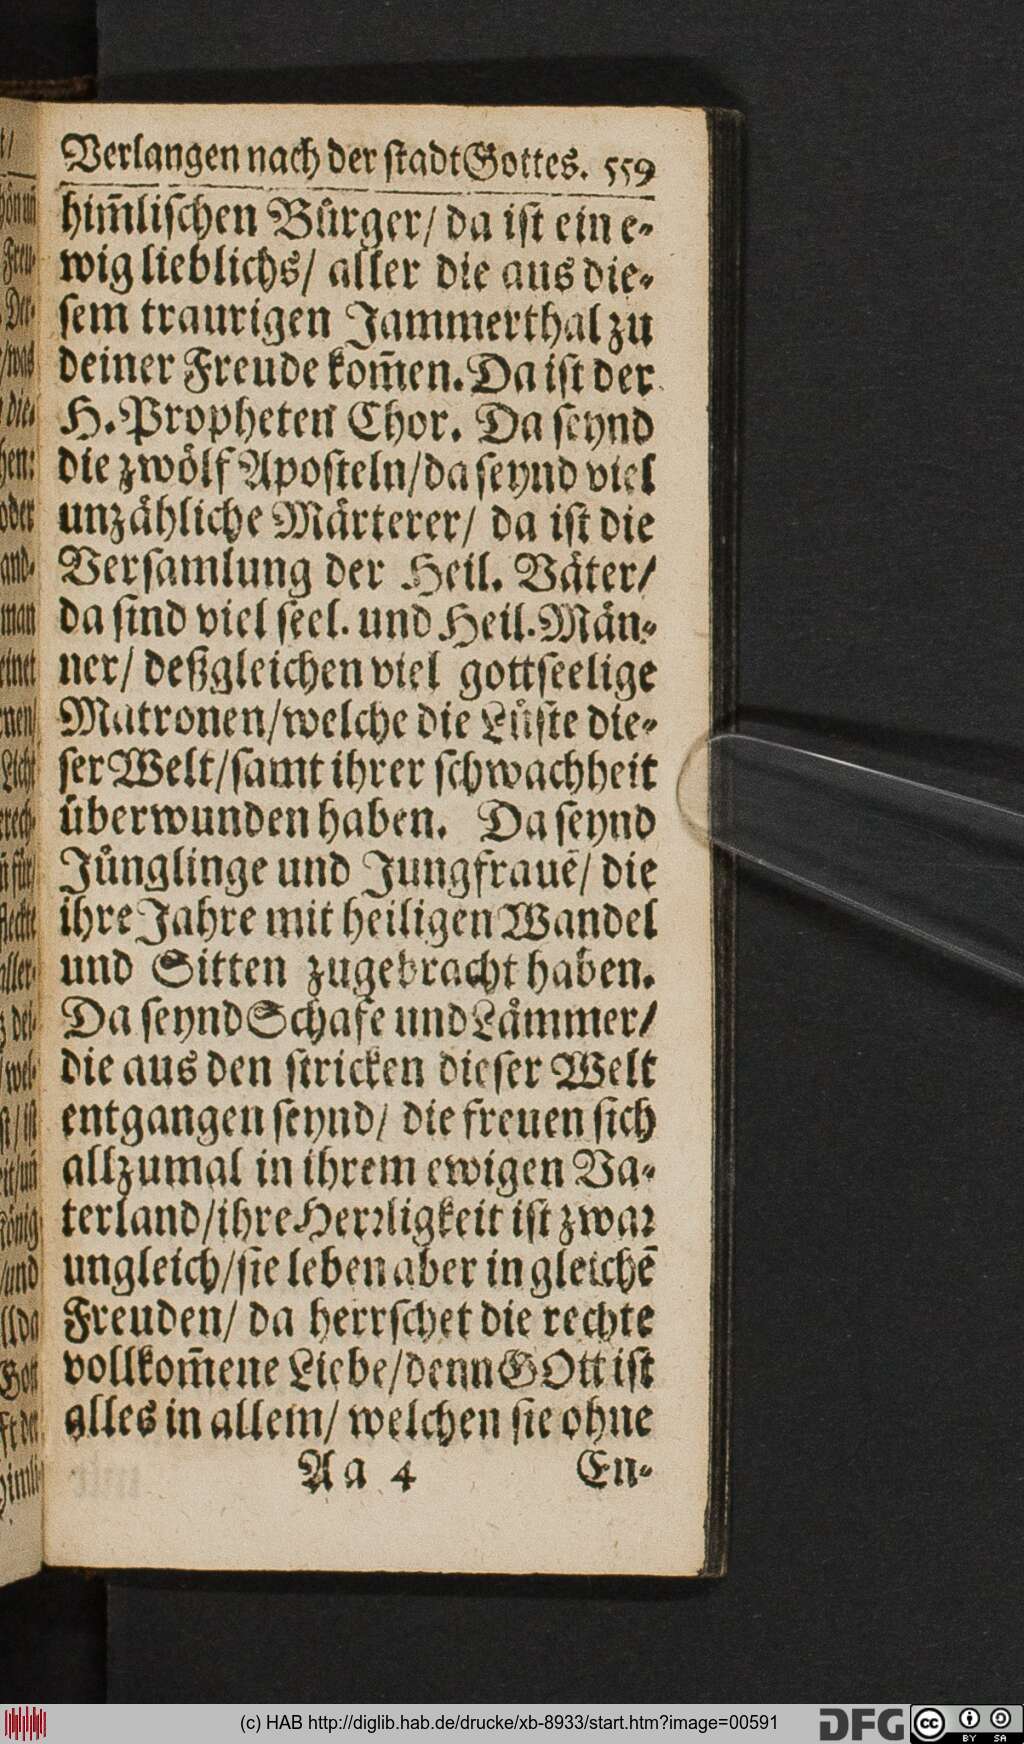 Verlangen nach der stadt Gottes. 559
him̄lischen Bůrger/ da ist ein e-
wig lieblichs/ aller die aus die-
sem traurigen Jammerthal zu
deiner Freude kom̄en. Da ist der
H. Propheten Chor. Da seynd
die zwoͤlf Aposteln/ da seynd viel
unzaͤhliche Maͤrterer/ da ist die
Versamlung der Heil. Vaͤter/
da sind viel seel. und Heil. Maͤn-
ner/ deßgleichen viel gottseelige
Matronen/ welche die Luͤste die-
ser Welt/ samt ihrer schwachheit
uͤberwunden haben. Da seynd
Juͤnglinge und Jungfrauē/ die
ihre Jahre mit heiligen Wandel
und Sitten zugebracht haben.
Da seynd Schafe und Laͤmmer/
die aus den stricken dieser Welt
entgangen seynd/ die freuen sich
allzumal in ihrem ewigen Va-
terland/ ihre Herꝛligkeit ist zwaꝛ
ungleich/ sie leben aber in gleichē
Freuden/ da herrschet die rechte
vollkom̄ene Liebe/ denn GOtt ist
alles in allem/ welchen sie ohne
Aa 4 En-
(c) HAB http://diglib.hab.de/drucke/xb-8933/start.htm?image=00591
DFG
cc BY SA